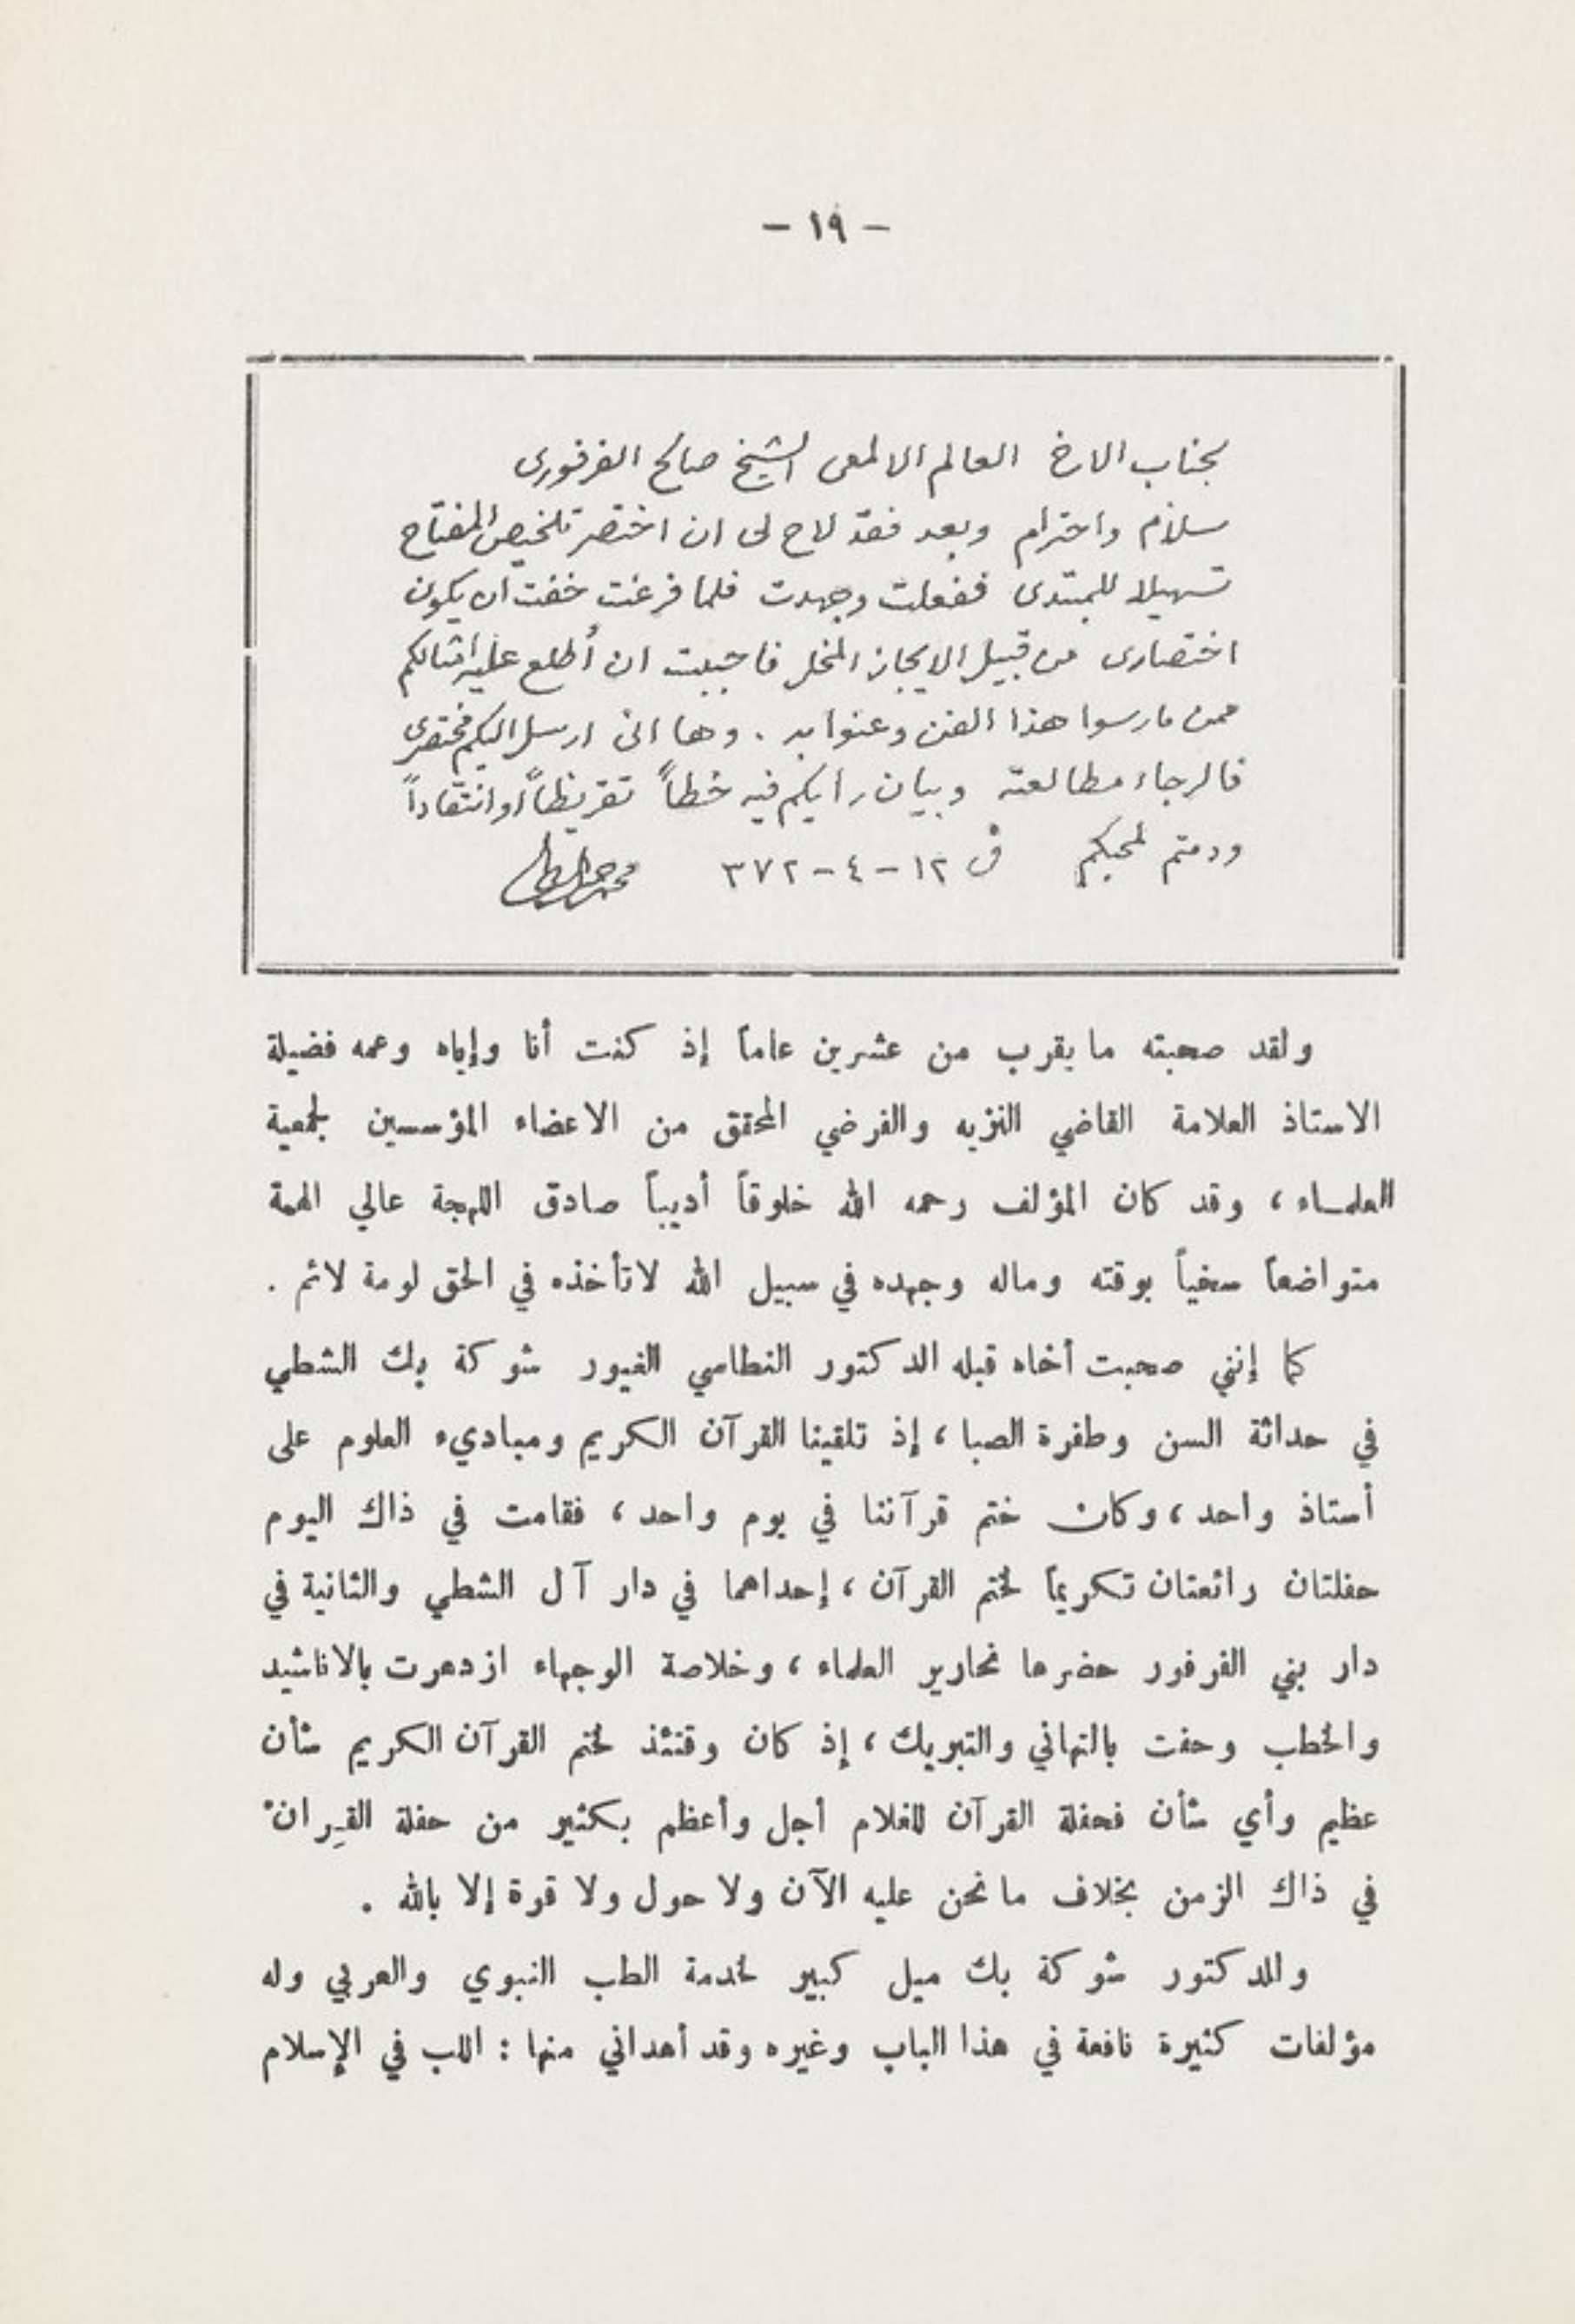 - ١٩ -
لجناب الاخ العالم الالمعى الشيخ صالح الفرفورى
سلام واحترام وبعد فقد لاح لى ان اختصر تلخيص المفتاح
تسهيلا للمبتدى ففعلت وجهدت فلما فرغت خفت ان يكون
اختصارى من قبيل الايجاز المخل فاحببت ان أطلع عليه امثالكم
ممن مارسوا هذا الفن وعنوا به . وها انى ارسل اليكم مختصرى
فالرجاء مطالعته وبيان رايكم فيه خطاً تقريظاً او انتقاداً
ودمتم لمحبكم فى ١٢-٤-٣٧٢
ولقد صحبته ما يقرب من عشرين عاماً إذ كنت أنا وإياه وعمه فضيلة
الاستاذ العلامة القاضي النزيه والفرضي المحقق من الاعضاء المؤسسين لجمعية
العلماء ، وقد كان المؤلف رحمه الله خلوقاً أديباً صادق اللهجة عالي الهمة
متواضعاً سخياً بوقته وماله وجهده في سبيل الله لاتأخذه في الحق لومة لائم .
كما إنني صحبت أخاه قبله الدكتور النطاسي الغيور شوكة بك الشطي
في حداثة السن وطفرة الصبا ، إذ تلقينا القرآن الكريم ومباديء العلوم على
أستاذ واحد ، وكان ختم قرآننا في يوم واحد ، فقامت في ذاك اليوم
حفلتان رائعتان تكريماً لختم القرآن ، إحداهما في دار آل الشطي والثانية في
دار بني الفرفور حضرها نحارير العلماء ، وخلاصة الوجهاء ازدهرت بالاناشيد
والخطب وحفت بالتهاني والتبريك ، إذ كان وقتئذ لختم القرآن الكريم شأن
عظيم وأي شأن فحفلة القرآن للغلام أجل وأعظم بكثير من حفلة القِرانْ
في ذاك الزمن بخلاف ما نحن عليه الآن ولا حول ولا قوة إلا بالله .
وللدكتور شوكة بك ميل كبير لخدمة الطب النبوي والعربي وله
مؤلفات كثيرة نافعة في هذا الباب وغيره وقد أهداني منها : اللب في الإسلام